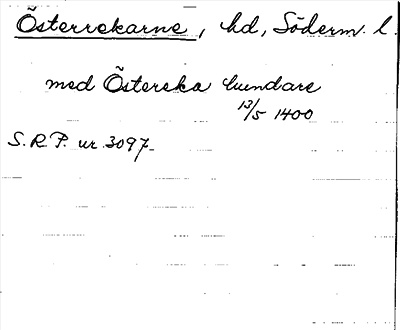 Österrekarne, hd, Söderm. l.
med Östereka hundare
13/5 1400
S.R.P. nr 3097